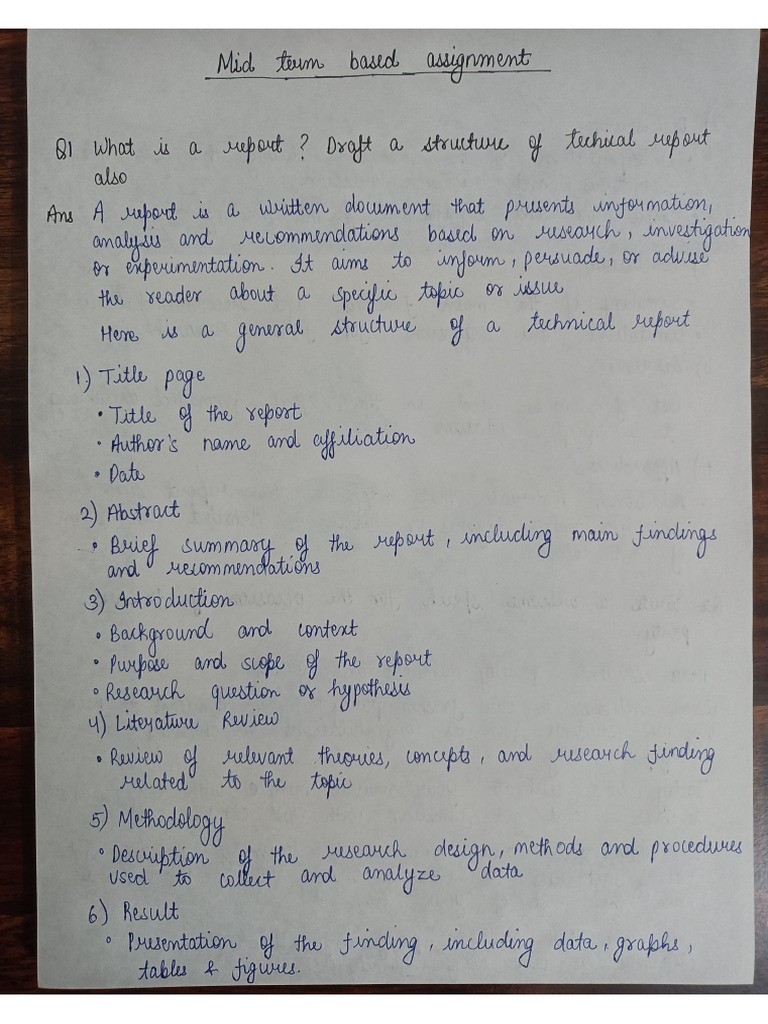 Mid term based assignment
Q1 What is a report ? Draft a structure of techical report
also
Ans A report is a written document that presents information,
analysis and recommendations based on research, investigation
or experimentation. It aims to inform, persuade, or advise
the reader about a specific topic or issue
Here is a general structure of a technical report
1) Title page
• Title of the report
• Author's name and affiliation
• Date
2) Abstract
• Brief summary of the report, including main findings
and recommendations
3) Introduction
• Background and context
• Purpose and scope of the report
• Research question or hypothesis
4) Literature Review
• Review of relevant theories, concepts, and research finding
related to the topic
5) Methodology
• Description of the research design, methods and procedures
used to collect and analyze data
6) Result
• Presentation of the finding, including data, graphs,
tables & figures.